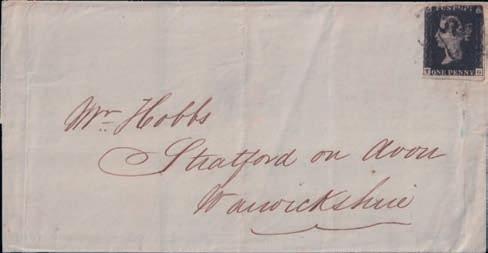 POSTAGE
ONE PENNY
Mr Hobbs
Stratford on Avon
Warwickshire